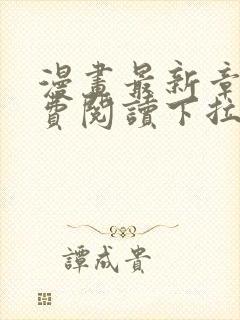 漫畫最新章
費閱讀下拉
譚成貴